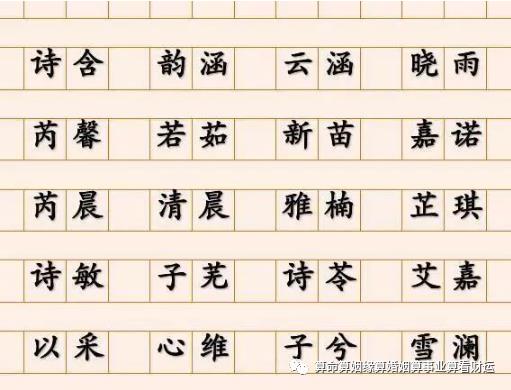 诗含 韵涵 云涵 晓雨
芮馨 若茹 新苗 嘉诺
芮晨 清晨 雅楠 芷琪
诗敏 子芜 诗苓 艾嘉
以采 心维 子兮 雪澜
算命算姻缘算婚姻算事业算看财运